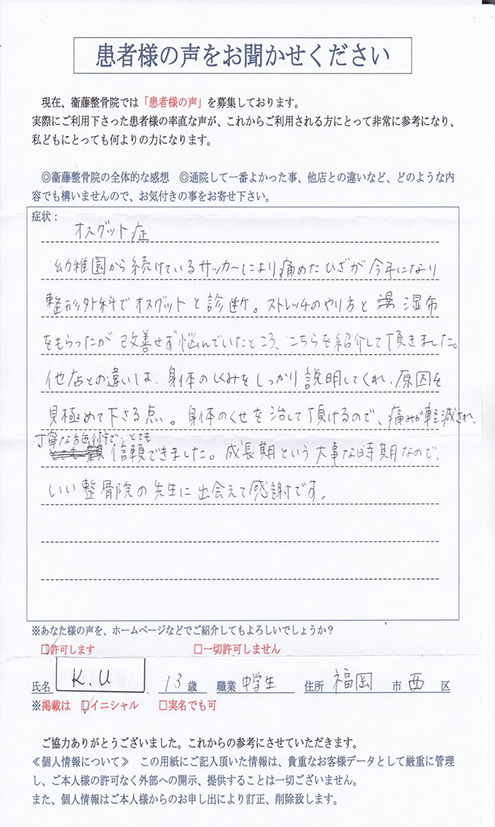 患者様の声をお聞かせください
現在、衞藤整骨院では「患者様の声」を募集しております。
実際にご利用下さった患者様の率直な声が、これからご利用される方にとって非常に参考になり、
私どもにとっても何よりの力になります。
◎衞藤整骨院の全体的な感想　◎通院して一番よかった事、他店との違いなど、どのような内
容でも構いませんので、お気付きの事をお寄せ下さい。
症状：
オスグット症
幼稚園から続けているサッカーにより痛めたひざが今年になり
整形外科でオスグットと診断。ストレッチのやり方と湿布
をもらったが改善せず悩んでいたところ、こちらを紹介して頂きました。
他店との違いは、身体のしくみをしっかり説明してくれ、原因を
見極めて下さる点。身体のくせを治して頂けるので、痛みが軽減され
丁寧な施術で、とても
信頼できました。成長期という大事な時期なので、
いい整骨院の先生に出会えて感謝です。
※あなた様の声を、ホームページなどでご紹介してもよろしいでしょうか？
□許可します　□一切許可しません
氏名　K.U　13歳　職業　中学生　住所　福岡　市　西　区
※掲載は　□イニシャル　□実名でも可
ご協力ありがとうございました。これからの参考にさせていただきます。
≪個人情報について≫　この用紙にご記入頂いた情報は、貴重なお客様データとして厳重に管理
し、ご本人様の許可なく外部への開示、提供することは一切ございません。
また、個人情報はご本人様からのお申し出により訂正、削除致します。